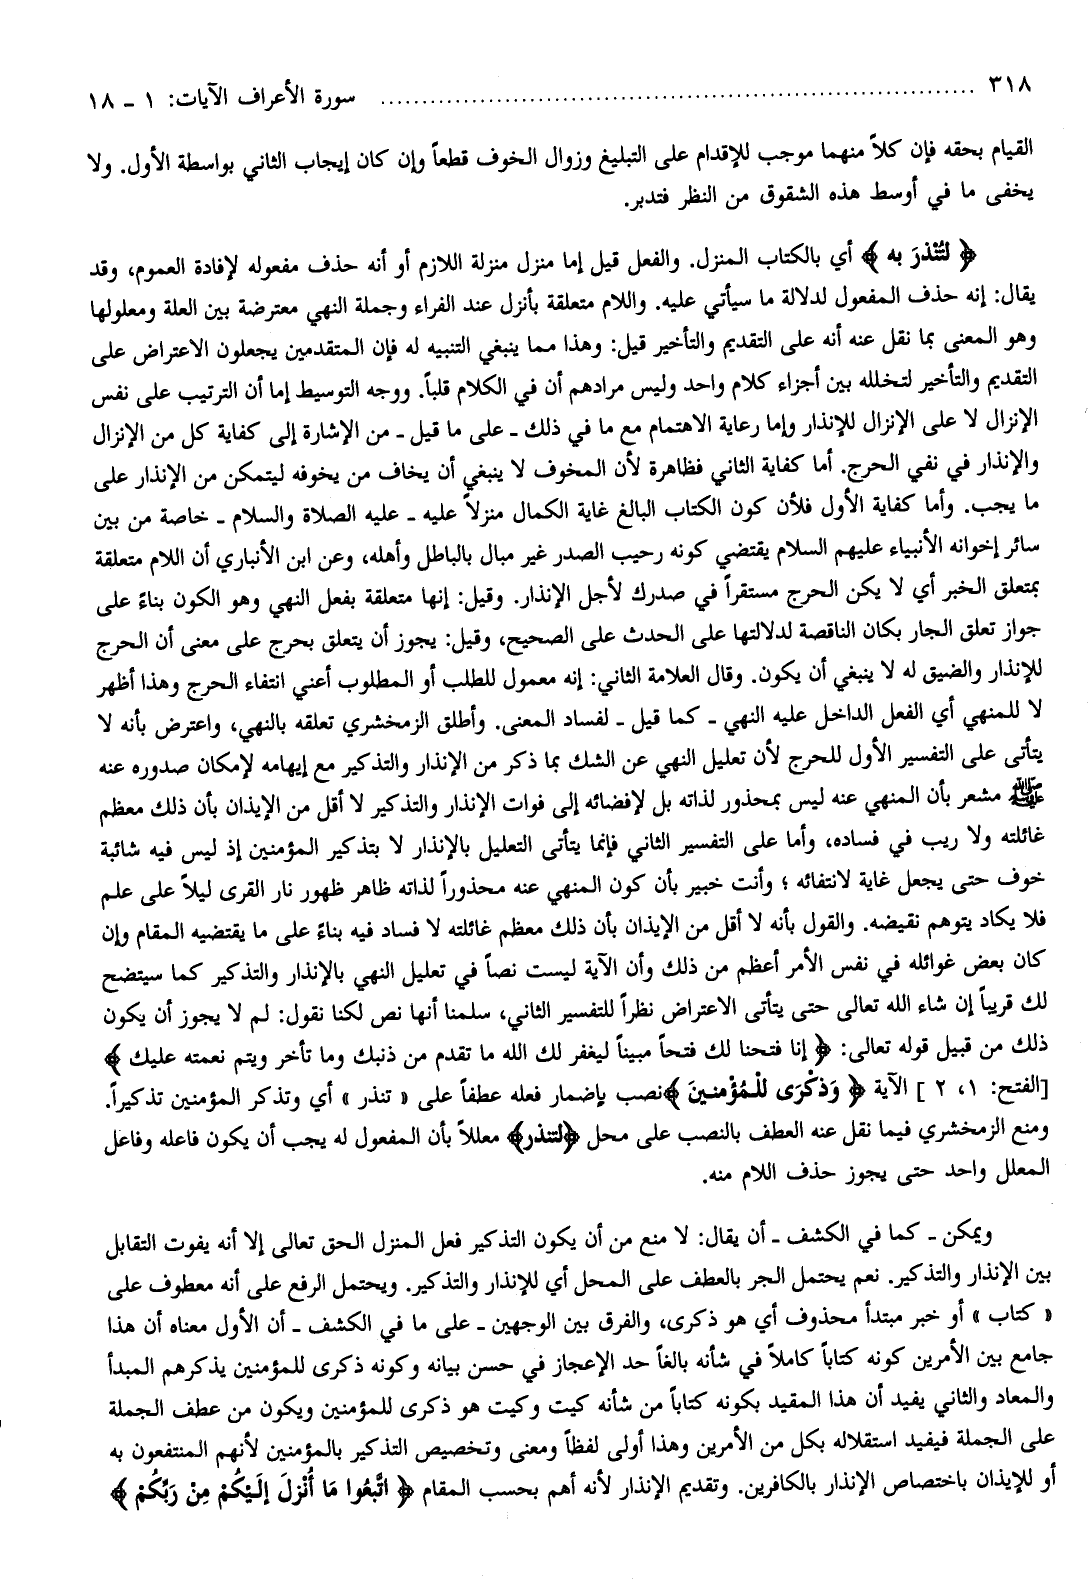 ٣١٨ ........................................ سورة الأعراف الآيات: ١ - ١٨
القيام بحقه فإن كلاً منهما موجب للإقدام على التبليغ وزوال الخوف قطعاً وإن كان إيجاب الثاني بواسطة الأول. ولا
يخفى ما في أوسط هذه الشقوق من النظر فتدبر.
﴿ لتُنْذرَ به ﴾ أي بالكتاب المنزل. والفعل قيل إما منزل منزلة اللازم أو أنه حذف مفعوله لإفادة العموم، وقد
يقال: إنه حذف المفعول لدلالة ما سيأتي عليه. واللام متعلقة بأنزل عند الفراء وجملة النهي معترضة بين العلة ومعلولها
وهو المعنى بما نقل عنه أنه على التقديم والتأخير قيل: وهذا مما ينبغي التنبيه له فإن المتقدمين يجعلون الاعتراض على
التقديم والتأخير لتخلله بين أجزاء كلام واحد وليس مرادهم أن في الكلام قلباً. ووجه التوسيط إما أن الترتيب على نفس
الإنزال لا على الإنزال للإنذار وإما رعاية الاهتمام مع ما في ذلك ـ على ما قيل ـ من الإشارة إلى كفاية كل من الإنزال
والإنذار في نفي الحرج. أما كفاية الثاني فظاهرة لأن المخوف لا ينبغي أن يخاف من يخوفه ليتمكن من الإنذار على
ما يجب. وأما كفاية الأول فلأن كون الكتاب البالغ غاية الكمال منزلاً عليه ـ عليه الصلاة والسلام ـ خاصة من بين
سائر إخوانه الأنبياء عليهم السلام يقتضي كونه رحيب الصدر غير مبال بالباطل وأهله، وعن ابن الأنباري أن اللام متعلقة
بمتعلق الخبر أي لا يكن الحرج مستقراً في صدرك لأجل الإنذار. وقيل: إنها متعلقة بفعل النهي وهو الكون بناءً على
جواز تعلق الجار بكان الناقصة لدلالتها على الحدث على الصحيح، وقيل: يجوز أن يتعلق بحرج على معنى أن الحرج
للإنذار والضيق له لا ينبغي أن يكون. وقال العلامة الثاني: إنه معمول للطلب أو المطلوب أعني انتفاء الحرج وهذا أظهر
لا للمنهي أي الفعل الداخل عليه النهي ـ كما قيل ـ لفساد المعنى. وأطلق الزمخشري تعلقه بالنهي، واعترض بأنه لا
يتأتى على التفسير الأول للحرج لأن تعليل النهي عن الشك بما ذكر من الإنذار والتذكير مع إيهامه لإمكان صدوره عنه
ﷺ مشعر بأن المنهي عنه ليس بمحذور لذاته بل لإفضائه إلى فوات الإنذار والتذكير لا أقل من الإيذان بأن ذلك معظم
غائلته ولا ريب في فساده، وأما على التفسير الثاني فإنما يتأتى التعليل بالإنذار لا بتذكير المؤمنين إذ ليس فيه شائبة
خوف حتى يجعل غاية لانتفائه ؛ وأنت خبير بأن كون المنهي عنه محذوراً لذاته ظاهر ظهور نار القرى ليلاً على علم
فلا يكاد يتوهم نقيضه. والقول بأنه لا أقل من الإيذان بأن ذلك معظم غائلته لا فساد فيه بناءً على ما يقتضيه المقام وإن
كان بعض غوائله في نفس الأمر أعظم من ذلك وأن الآية ليست نصاً في تعليل النهي بالإنذار والتذكير كما سيتضح
لك قريباً إن شاء الله تعالى حتى يتأتى الاعتراض نظراً للتفسير الثاني، سلمنا أنها نص لكنا نقول: لم لا يجوز أن يكون
ذلك من قبيل قوله تعالى: ﴿ إنا فتحنا لك فتحاً مبيناً ليغفر لك الله ما تقدم من ذنبك وما تأخر ويتم نعمته عليك ﴾
[الفتح: ١، ٢ ] الآية ﴿ وَذكْرَى للْمُؤْمنينَ ﴾نصب بإضمار فعله عطفاً على « تنذر » أي وتذكر المؤمنين تذكيراً.
ومنع الزمخشري فيما نقل عنه العطف بالنصب على محل ﴿لتنذر﴾ معللاً بأن المفعول له يجب أن يكون فاعله وفاعل
المعلل واحد حتى يجوز حذف اللام منه.
ويمكن ـ كما في الكشف ـ أن يقال: لا منع من أن يكون التذكير فعل المنزل الحق تعالى إلا أنه يفوت التقابل
بين الإنذار والتذكير. نعم يحتمل الجر بالعطف على المحل أي للإنذار والتذكير. ويحتمل الرفع على أنه معطوف على
« كتاب » أو خبر مبتدأ محذوف أي هو ذكرى، والفرق بين الوجهين ـ على ما في الكشف ـ أن الأول معناه أن هذا
جامع بين الأمرين كونه كتاباً كاملاً في شأنه بالغاً حد الإعجاز في حسن بيانه وكونه ذكرى للمؤمنين يذكرهم المبدأ
والمعاد والثاني يفيد أن هذا المقيد بكونه كتاباً من شأنه كيت وكيت هو ذكرى للمؤمنين ويكون من عطف الجملة
على الجملة فيفيد استقلاله بكل من الأمرين وهذا أولى لفظاً ومعنى وتخصيص التذكير بالمؤمنين لأنهم المنتفعون به
أو للإيذان باختصاص الإنذار بالكافرين. وتقديم الإنذار لأنه أهم بحسب المقام ﴿ اتَّبعُوا مَا أُنْزلَ إلَيْكُمْ منْ رَبِّكُمْ ﴾